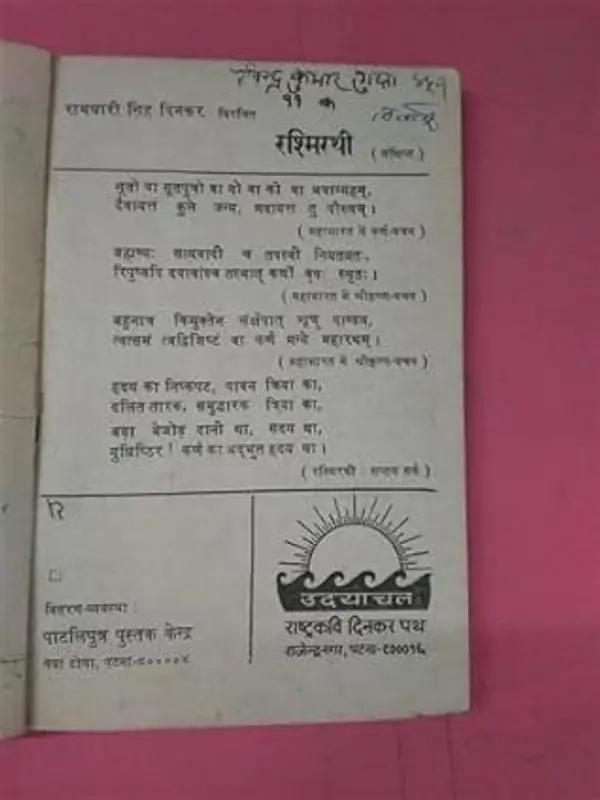 कुमार
११
रामधारी सिंह दिनकर विरचित
रश्मिरथी ( संक्षिप्त )
सूतो वा सूतपुत्रो वा यो वा को वा भवाम्यहम्,
दैवायत्तं कुले जन्म, मदायत्तं तु पौरुषम् ।
( महाभारत में कर्ण-वचन )
ब्रह्मण्यः सत्यवादी च तपस्वी नियतव्रतः,
रिपुष्वपि दयावांश्च तस्मात् कर्णो वृषः स्मृतः ।
( महाभारत में श्रीकृष्ण-वचन )
बहुनात्र किमुक्तेन संक्षेपात् शृणु पाण्डव,
त्वत्समं त्वद्विशिष्टं वा कर्णं मन्ये महारथम् ।
( महाभारत में श्रीकृष्ण-वचन )
हृदय का निष्कपट, पावन क्रिया का,
दलित तारक, समुद्धारक त्रिया का,
बड़ा बेजोड़ दानी था, सदय था,
युधिष्ठिर ! कर्ण का अद्भुत हृदय था ।
( रश्मिरथी : सप्तम सर्ग )
वितरण-व्यवस्था :
पाटलिपुत्र पुस्तक केन्द्र
नया टोला, पटना-८००००४
उदयाचल
राष्ट्रकवि दिनकर पथ
राजेन्द्रनगर, पटना-८०००१६